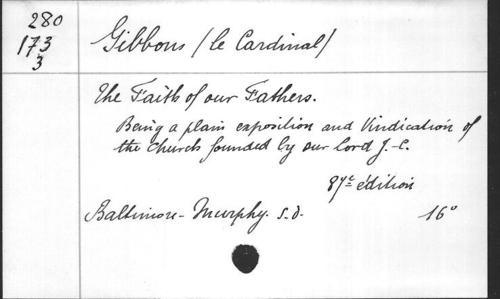 280
173
3
Gibbons (le Cardinal)
The Faith of our Fathers.
Being a plain exposition and Vindication of
the Church founded by our lord J.-C.
87e édition
Baltimore - Murphy. s.d. 16°